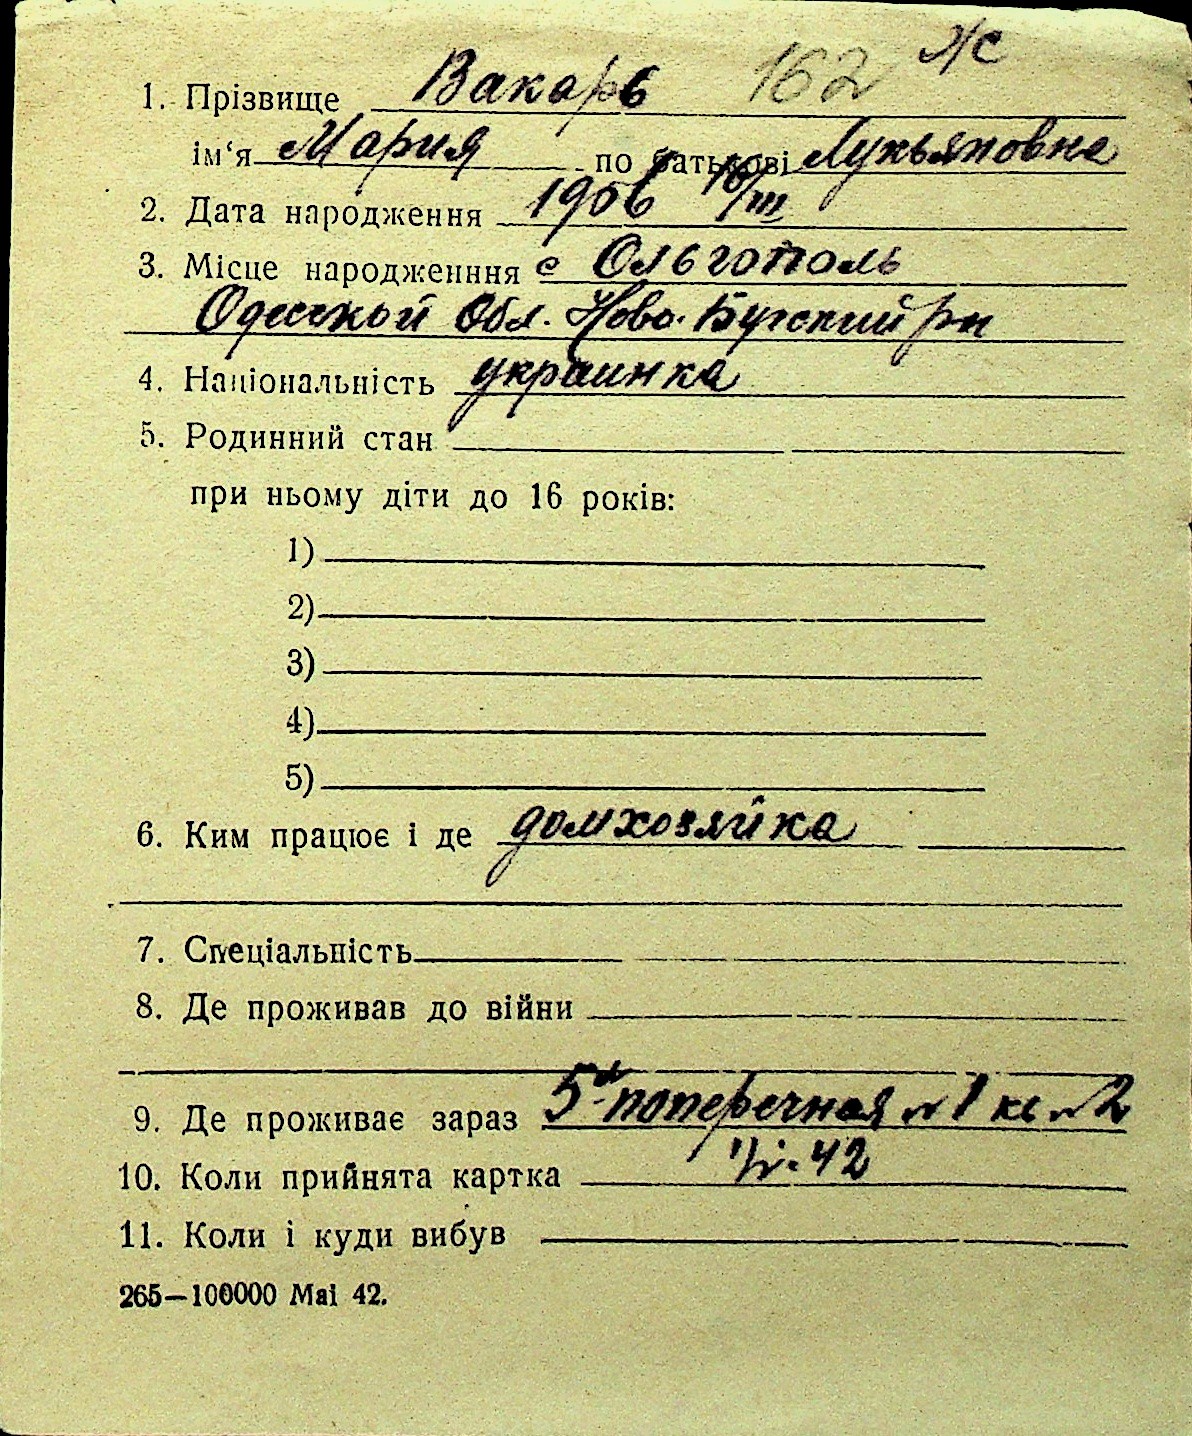 ж/с
1. Прізвище Вакарь 162
ім‘я Мария по батькові Лукьяновна
2. Дата народження 1906 16/III
3. Місце народженння с Ольгополь
Одесской Обл. Ново-Бугский рн
4. Національність украинка
5. Родинний стан
при ньому діти до 16 років:
1)
2)
3)
4)
5)
6. Ким працює і де домхозяйка
7. Спеціальність
8. Де проживав до війни
9. Де проживає зараз 5я поперечная №1 кв №2
10. Коли прийнята картка 42
11. Коли і куди вибув
265—100000 Mai 42.